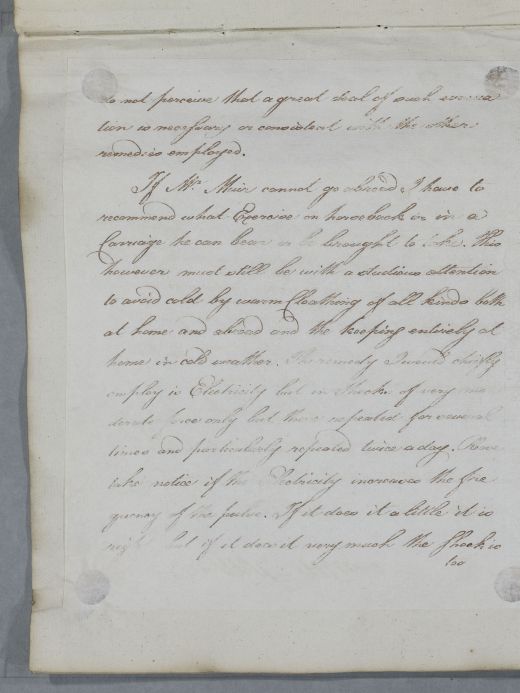 do not perceive that a great deal of such evacua
tion is necessary or consistent with the other
remedies employed.
If Mr. Muir cannot go abroad I have to
recommend what Exercise on horseback or in a
Carriage he can bear or be brought to take. This
however must still be with a studious attention
to avoid cold by warm Cloathing of all kinds both
at home and abroad and the keeping entirely at
home in cold weather. The remedy I would chiefly
employ is Electricity but in Shocks of very mo
derate force only but these repeated for several
times and particularly repeated twice a day.
take notice if the Electricity increases the fre
quency of the pulse. If it does it a little it is
right but if it does it very much the Shock is
too